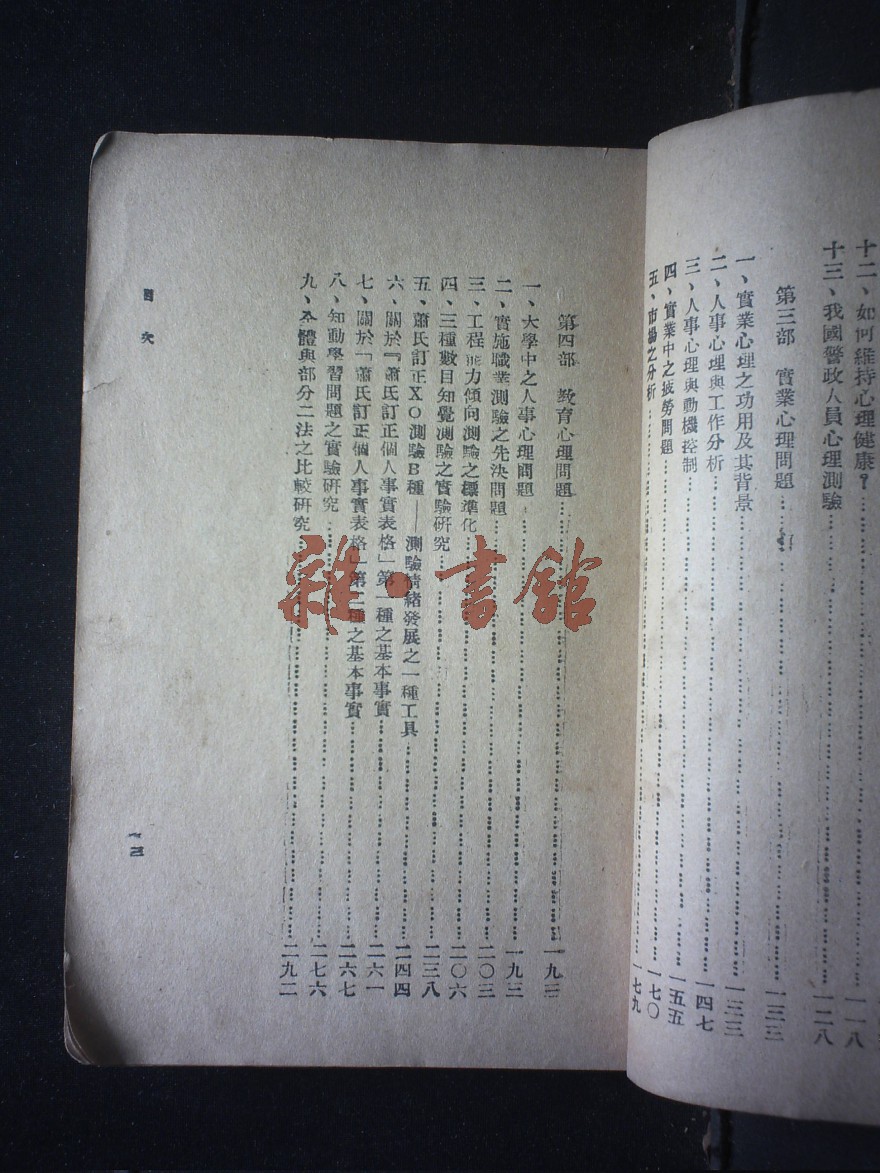 十二、如何維持心理健康？……一一八
十三、我國警政人員心理測驗……一二八
第三部 實業心理問題……一三三
一、實業心理之功用及其背景……一三三
二、人事心理與工作分析……一四七
三、人事心理與動機控制……一五五
四、實業中之疲勞問題……一七〇
五、市場之分析……一七九
第四部 教育心理問題……一九三
一、大學中之人事心理問題……一九三
二、實施職業測驗之先決問題……二〇三
三、工程能力傾向測驗之標準化……二〇六
四、三種數目知覺測驗之實驗研究……二三八
五、蕭氏訂正XO測驗B種——測驗情緒發展之一種工具……二四四
六、關於『蕭氏訂正個人事實表格」第一種之基本事實……二六一
七、關於「蕭氏訂正個人事實表格」第二種之基本事實……二六七
八、知動學習問題之實驗研究……二七六
九、全體與部分二法之比較研究……二九二
目次
三
雜·書館